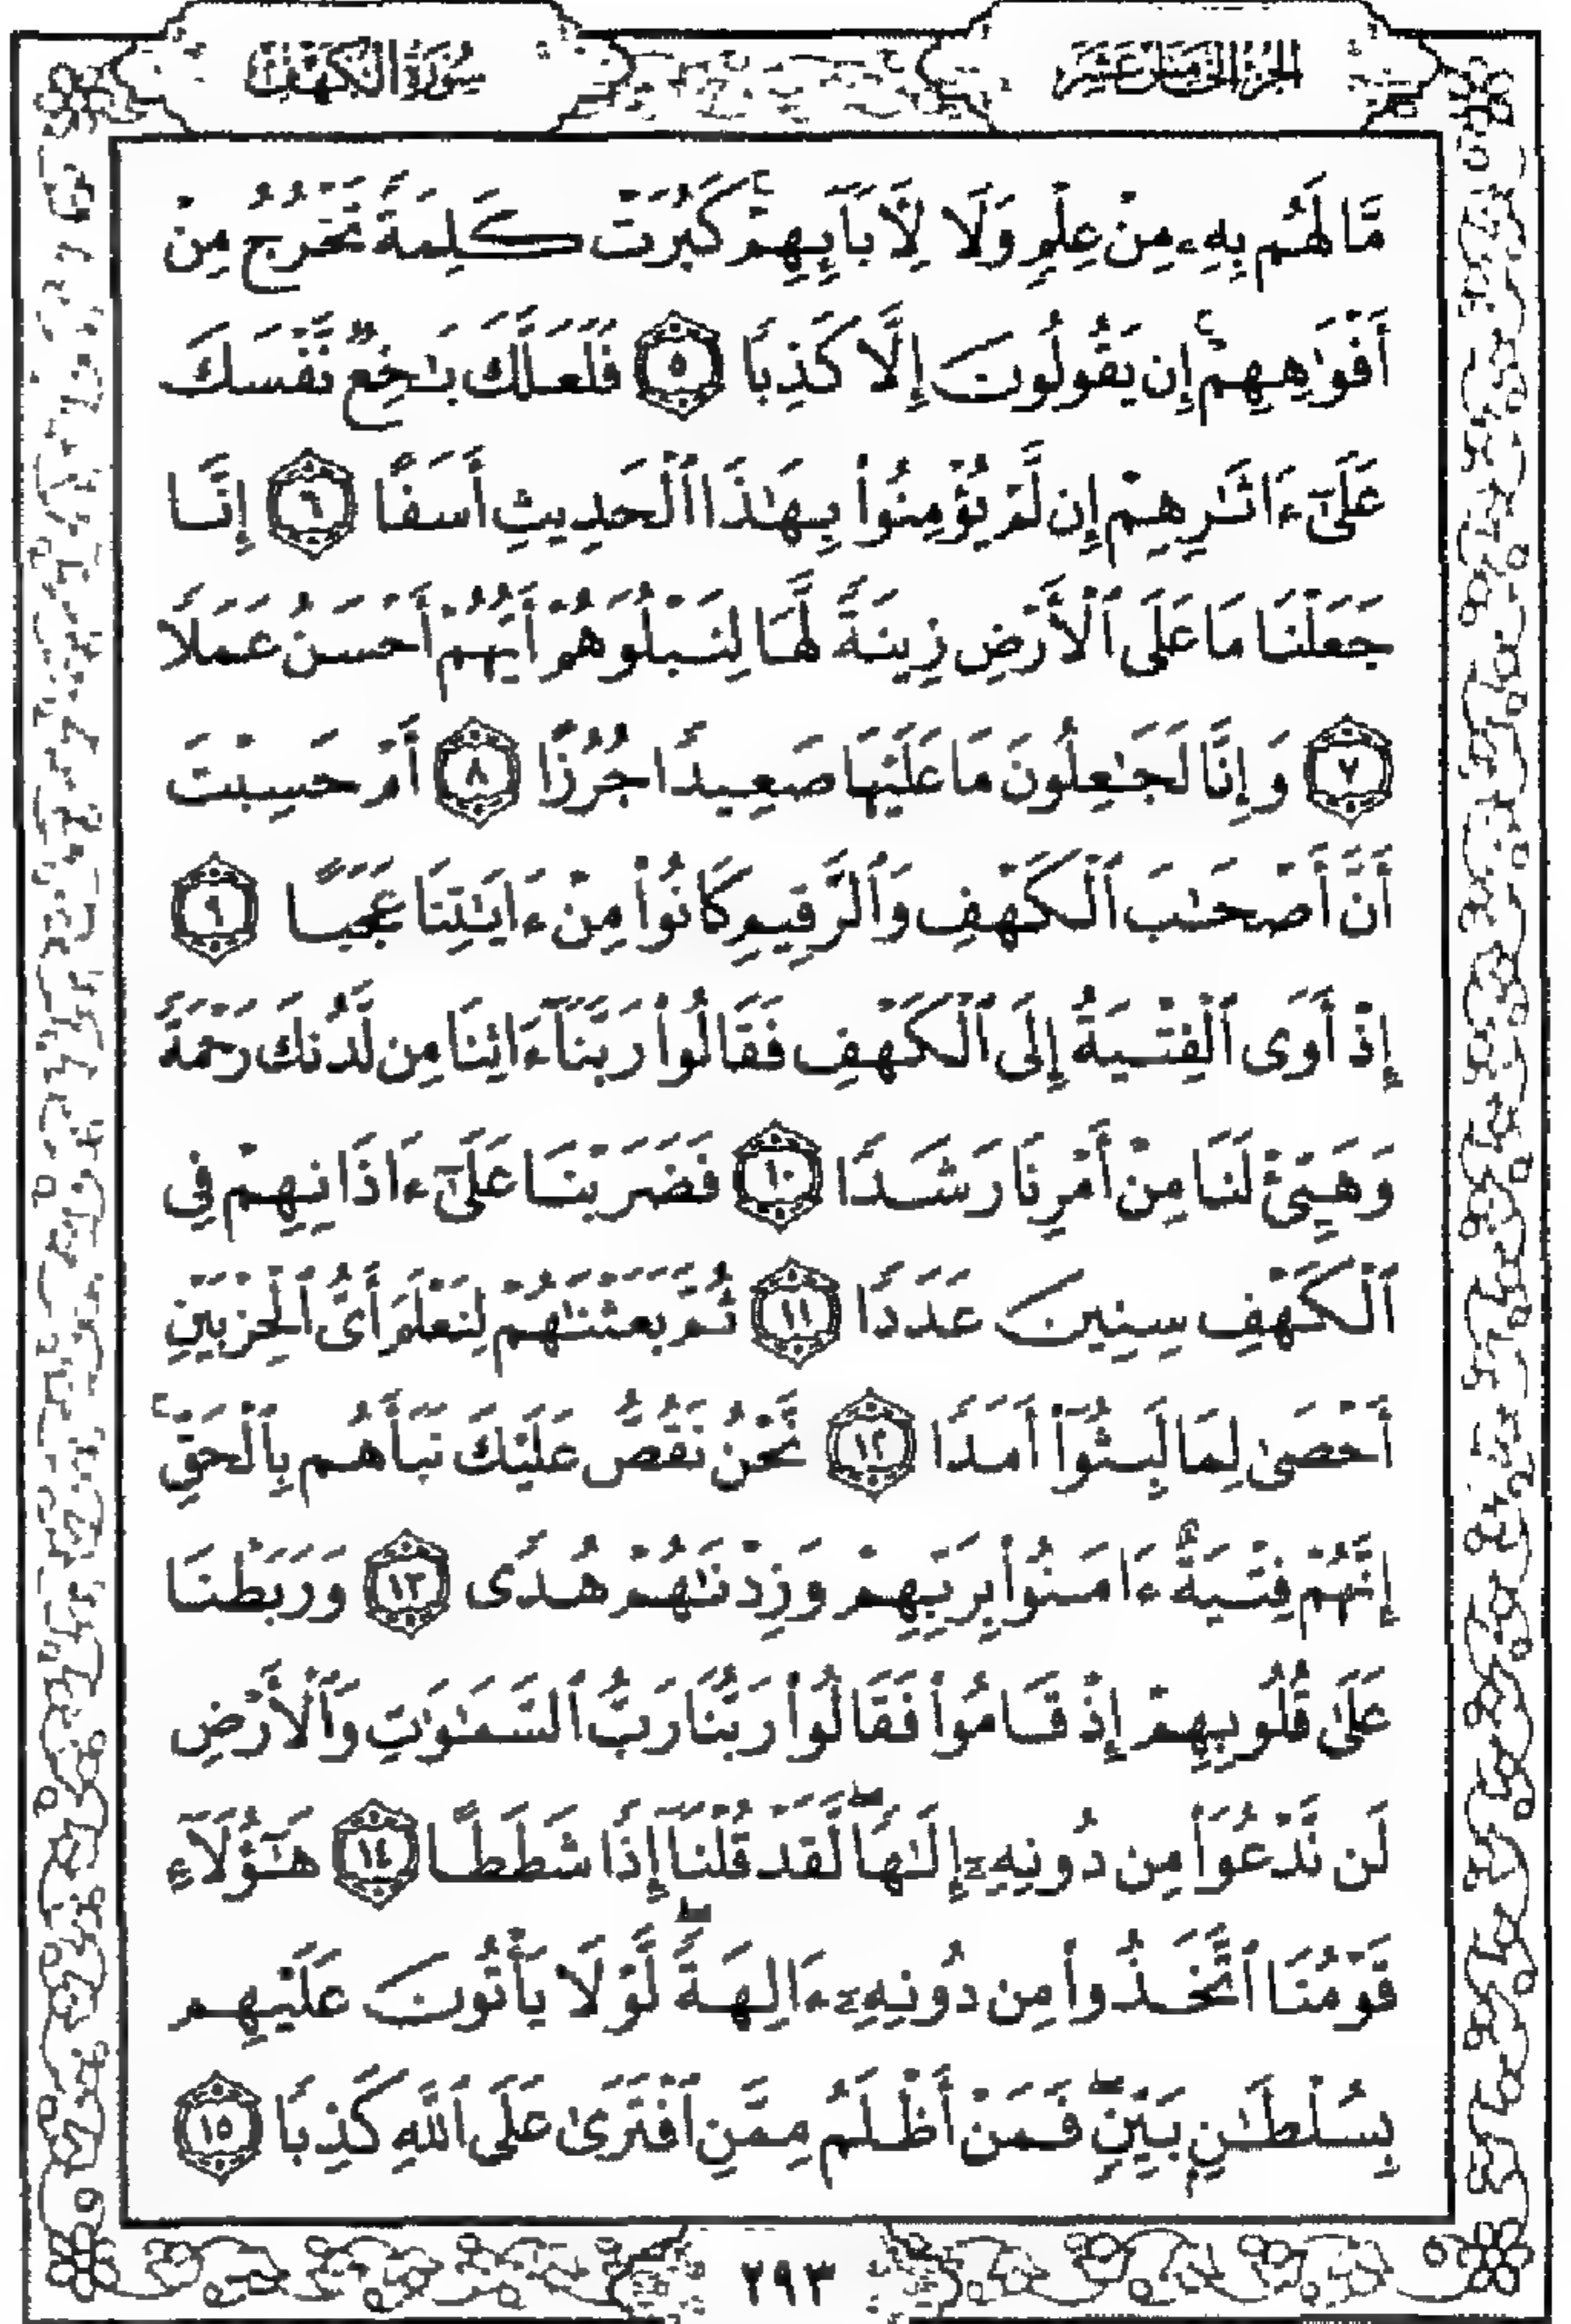 الجزء الخامس عشر
سورة الكهف
مَّا لَهُم بِهِۦ مِنْ عِلْمٍ وَلَا لِأٓبَآئِهِمْ ۚ كَبُرَتْ كَلِمَةً تَخْرُجُ مِنْ
أَفْوَٰهِهِمْ ۚ إِن يَقُولُونَ إِلَّا كَذِبًا ٥ فَلَعَلَّكَ بَـٰخِعٌ نَّفْسَكَ
عَلَىٰٓ ءَاثَـٰرِهِمْ إِن لَّمْ يُؤْمِنُوا۟ بِهَـٰذَا ٱلْحَدِيثِ أَسَفًا ٦ إِنَّا
جَعَلْنَا مَا عَلَى ٱلْأَرْضِ زِينَةً لَّهَا لِنَبْلُوَهُمْ أَيُّهُمْ أَحْسَنُ عَمَلًا
٧ وَإِنَّا لَجَـٰعِلُونَ مَا عَلَيْهَا صَعِيدًا جُرُزًا ٨ أَمْ حَسِبْتَ
أَنَّ أَصْحَـٰبَ ٱلْكَهْفِ وَٱلرَّقِيمِ كَانُوا۟ مِنْ ءَايَـٰتِنَا عَجَبًا ٩
إِذْ أَوَى ٱلْفِتْيَةُ إِلَى ٱلْكَهْفِ فَقَالُوا۟ رَبَّنَآ ءَاتِنَا مِن لَّدُنكَ رَحْمَةً
وَهَيِّئْ لَنَا مِنْ أَمْرِنَا رَشَدًا ١٠ فَضَرَبْنَا عَلَىٰٓ ءَاذَانِهِمْ فِى
ٱلْكَهْفِ سِنِينَ عَدَدًا ١١ ثُمَّ بَعَثْنَـٰهُمْ لِنَعْلَمَ أَىُّ ٱلْحِزْبَيْنِ
أَحْصَىٰ لِمَا لَبِثُوٓا۟ أَمَدًا ١٢ نَّحْنُ نَقُصُّ عَلَيْكَ نَبَأَهُم بِٱلْحَقِّ ۚ
إِنَّهُمْ فِتْيَةٌ ءَامَنُوا۟ بِرَبِّهِمْ وَزِدْنَـٰهُمْ هُدًى ١٣ وَرَبَطْنَا
عَلَىٰ قُلُوبِهِمْ إِذْ قَامُوا۟ فَقَالُوا۟ رَبُّنَا رَبُّ ٱلسَّمَـٰوَٰتِ وَٱلْأَرْضِ
لَن نَّدْعُوَا۟ مِن دُونِهِۦٓ إِلَـٰهًا ۖ لَّقَدْ قُلْنَآ إِذًا شَطَطًا ١٤ هَـٰٓؤُلَآءِ
قَوْمُنَا ٱتَّخَذُوا۟ مِن دُونِهِۦٓ ءَالِهَةً ۖ لَّوْلَا يَأْتُونَ عَلَيْهِم
بِسُلْطَـٰنٍۭ بَيِّنٍ ۖ فَمَنْ أَظْلَمُ مِمَّنِ ٱفْتَرَىٰ عَلَى ٱللَّهِ كَذِبًا ١٥
٢٩٣